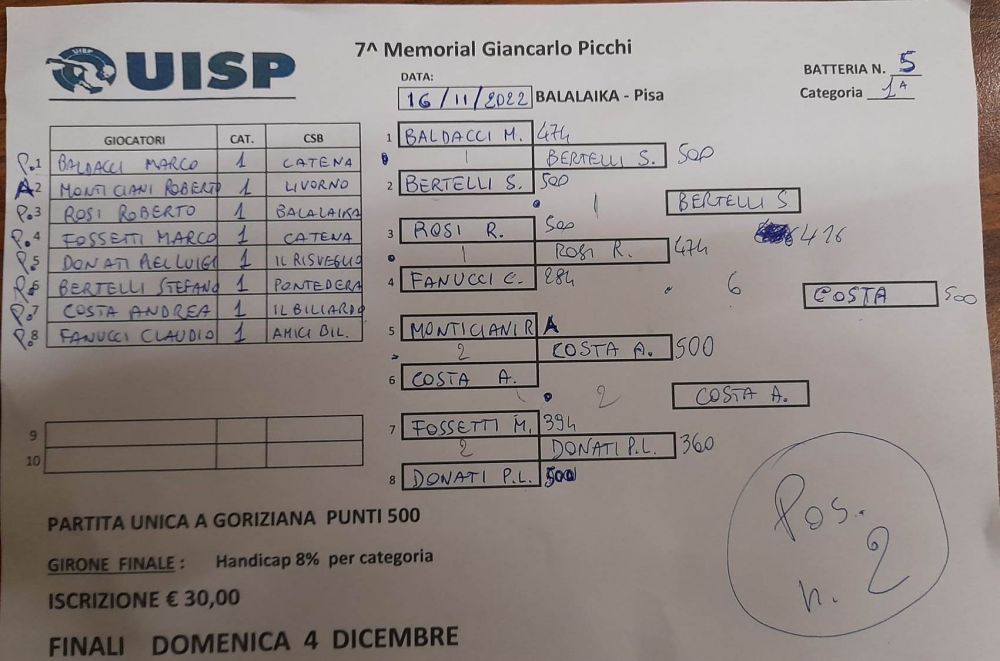 UISP
7^ Memorial Giancarlo Picchi
DATA:
16/11/2022 BALALAIKA - Pisa
BATTERIA N. 5
Categoria 1A
GIOCATORI CAT. CSB
P.1 BALDACCI MARCO 1 CATENA
A2 MONTICIANI ROBERTO 1 LIVORNO
P.3 ROSI ROBERTO 1 BALALAIKA
P.4 FOSSETTI MARCO 1 CATENA
P.5 DONATI PIERLUIGI 1 IL RISVEGLIO
P.6 BERTELLI STEFANO 1 PONTEDERA
P.7 COSTA ANDREA 1 IL BILIARDO
P.8 FANUCCI CLAUDIO 1 AMICI BIL.
9
10
1 BALDACCI M. 474
1 BERTELLI S. 500
2 BERTELLI S. 500
1 BERTELLI S
3 ROSI R. 500
416
1 ROSI R. 474
4 FANUCCI C. 284
6 COSTA 500
5 MONTICIANI R A
2 COSTA A. 500
6 COSTA A.
2 COSTA A.
7 FOSSETTI M. 394
2 DONATI P.L. 360
8 DONATI P.L. 500
Pos.
n. 2
PARTITA UNICA A GORIZIANA PUNTI 500
GIRONE FINALE : Handicap 8% per categoria
ISCRIZIONE € 30,00
FINALI DOMENICA 4 DICEMBRE